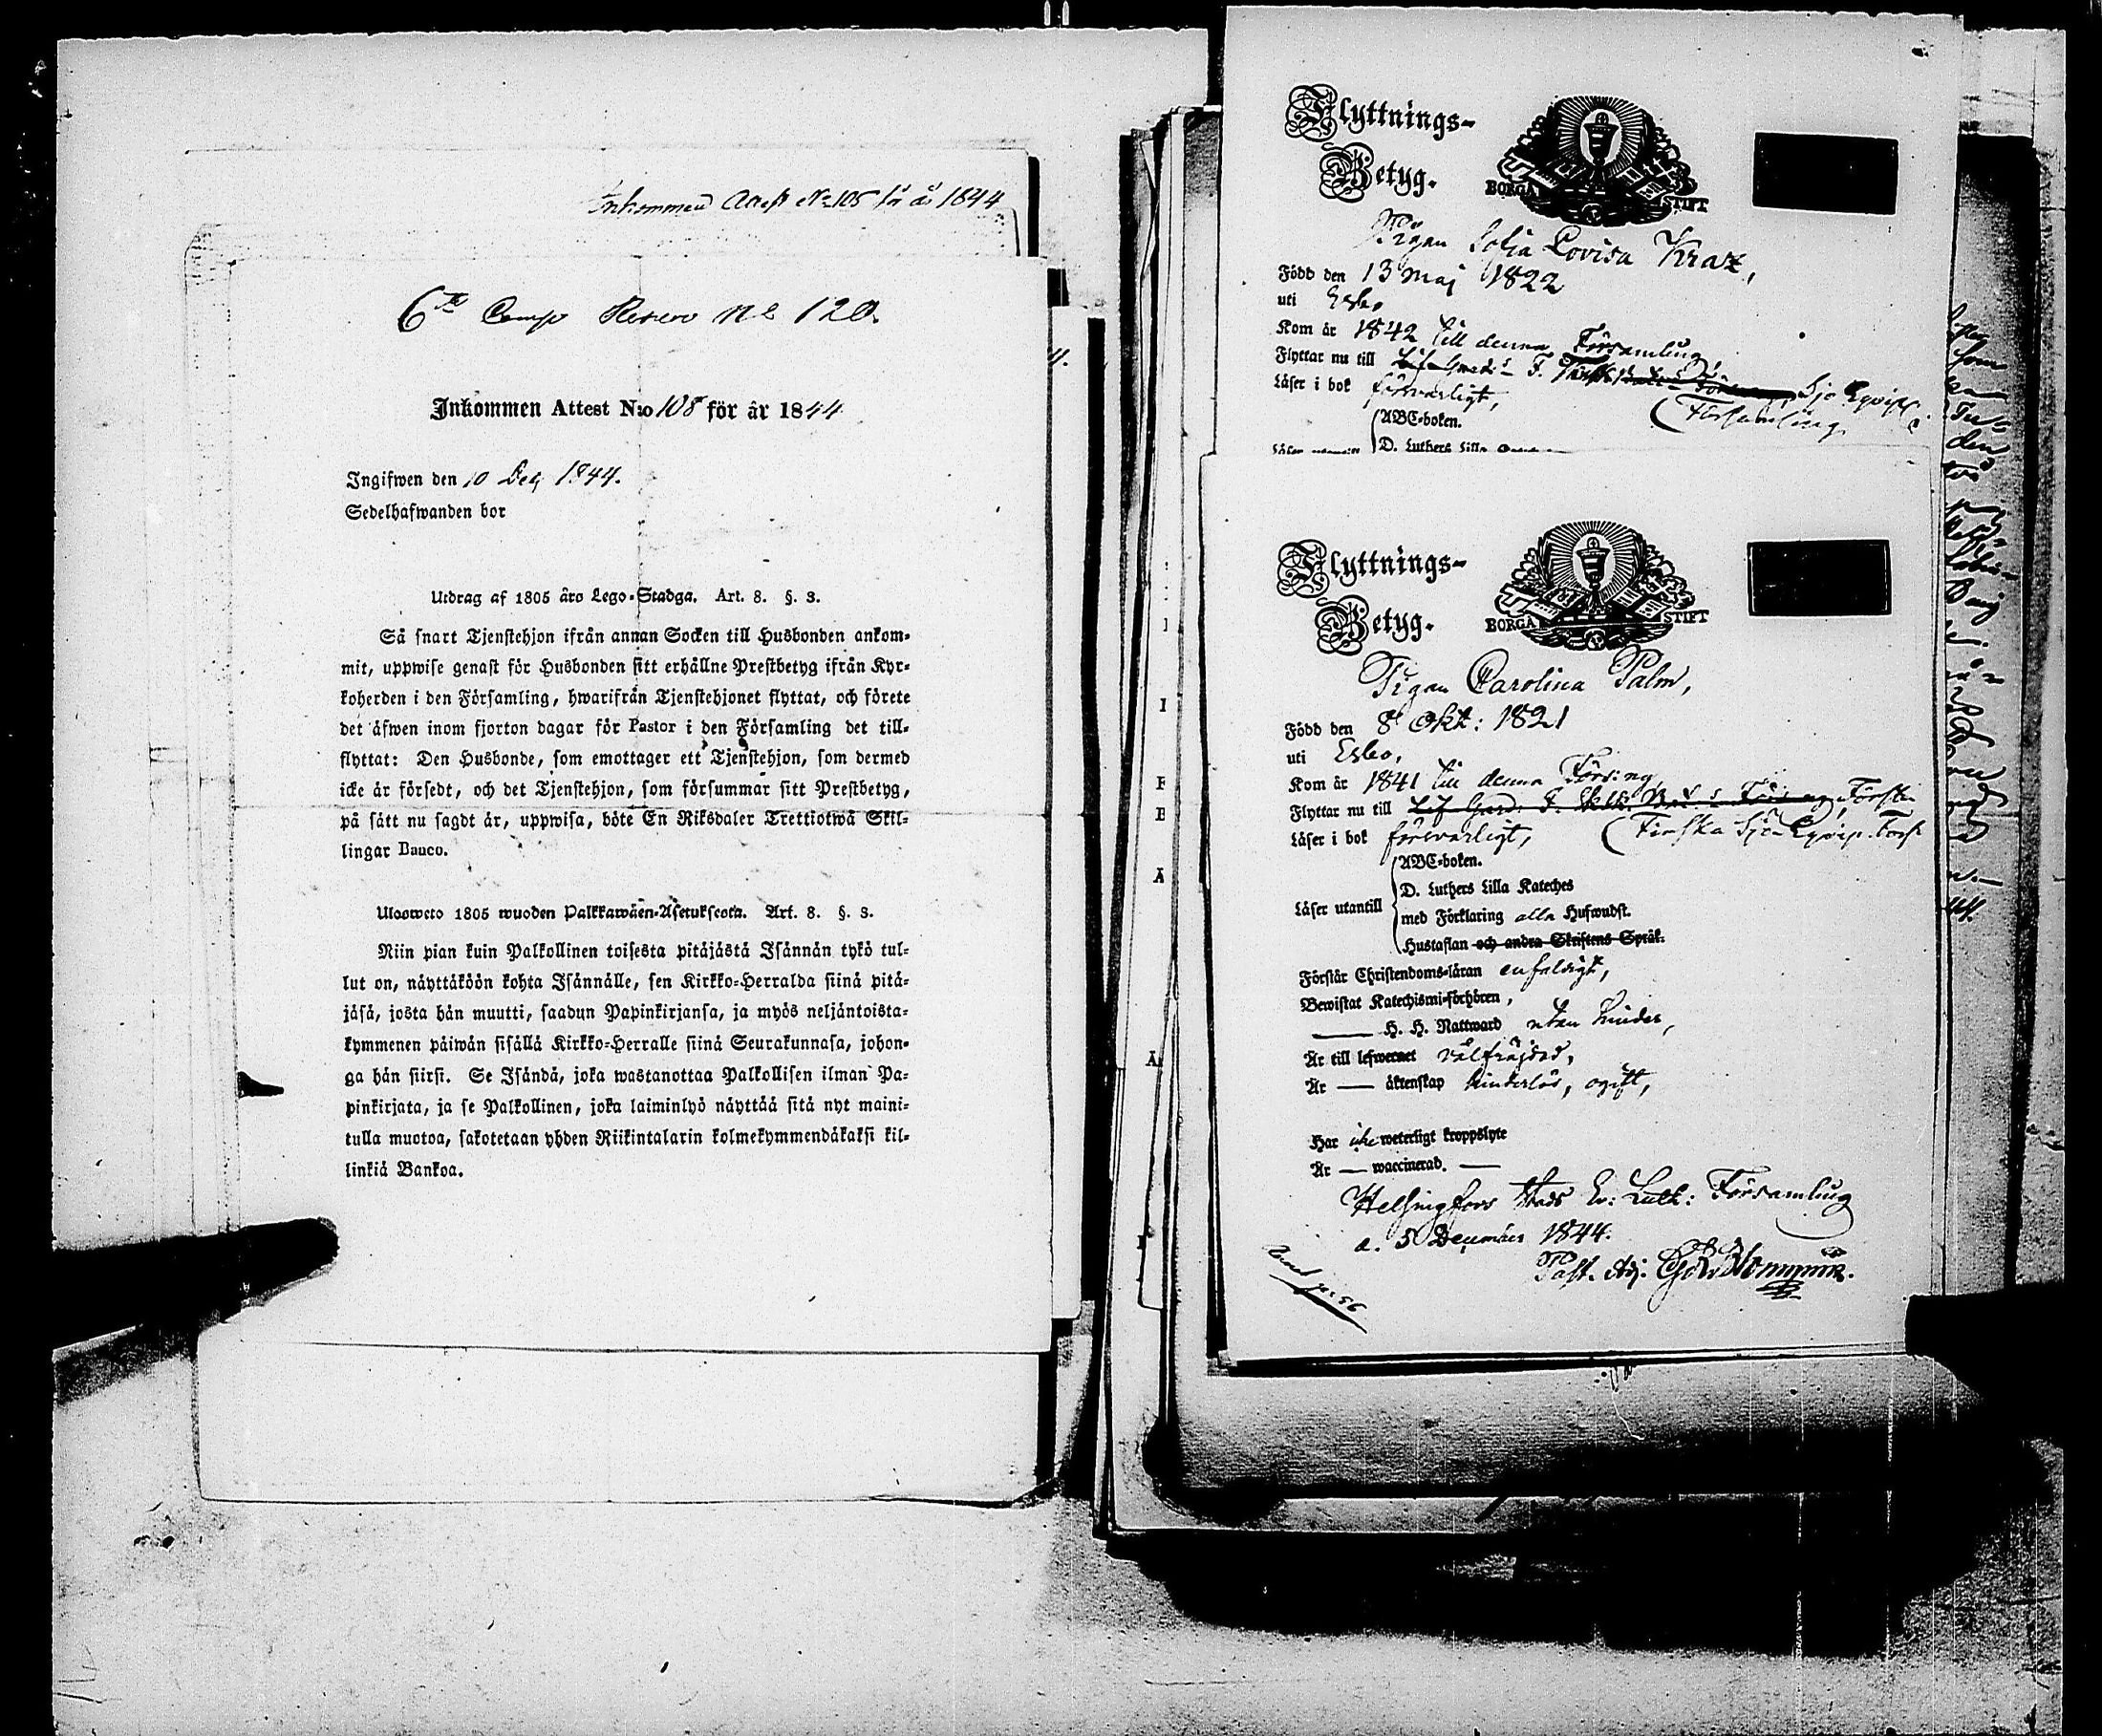 Inkommen Attest No 105 för år 1844
6te Comp Reserv No 120.
Inkommen Attest N:o 108 för år 1844
Ingifwen den 10 Dec 1844.
Sedelhafwanden bor
Utdrag af 1805 års Lego-Stadga. Art. 8. §. 3.
Så snart Tjenstehjon ifrån annan Socken till Husbonden ankom-
mit, uppwise genast för Husbonden sitt erhållne Prestbetyg ifrån Kyr-
koherden i den Församling, hwarifrån Tjenstehjonet flyttat, och förete
det äfwen inom fjorton dagar för Pastor i den Församling det till-
flyttat: Den Husbonde, som emottager ett Tjenstehjon, som dermed
icke är försedt, och det Tjenstehjon, som försummar sitt Prestbetyg,
på sätt nu sagdt är, uppwisa, böte En Riksdaler Trettiotwå Skil-
lingar Banco.
Ulosweto 1805 wuoden Palkkawäen-Asetuksesta. Art. 8. §. 3.
Niin pian kuin Palkollinen toisesta pitäjästä Isännän tykö tul-
lut on, näyttäköön kohta Isännälle, sen Kirkko-Herralda siinä pitä-
jäsä, josta hän muutti, saadun Papinkirjansa, ja myös neljäntoista-
kymmenen päiwän sisällä Kirkko-Herralle siinä Seurakunnasa, johon-
ga hän siirsi. Se Isändä, joka wastanottaa Palkollisen ilman Pa-
pinkirjata, ja se Palkollinen, joka laiminlyö näyttää sitä nyt maini-
tulla muotoa, sakotetaan yhden Riikintalarin kolmekymmendäkaksi kil-
linkiä Bankoa.
Flyttnings-
Betyg.
BORGÅ STIFT
Pigan Sofia Lovisa Kraz,
Född den 13 Maj 1822
uti Esbo
Kom år 1842 till denna Församling,
Flyttar nu till Sjö Eqvip
Läser i bok försvarligt, (Församling
ABC-boken.
D. Luthers Lilla
Flyttnings-
Betyg.
BORGÅ STIFT
Pigan Carolina Palm,
Född den 8 Okt: 1821
uti Esbo,
Kom år 1841 till denna Förs:ng
Flyttar nu till Lif Gard:
Läser i bok försvarligt, (Finska Sjö-Eqvip. Förs
ABC-boken.
D. Luthers Lilla Kateches
Läser utantill med Förklaring alla Hufwudst.
Hustaflan och andra Skriftens Språk.
Förstår Christendoms-läran enfaldigt,
Bewistat Katechismi-förhören,
— H. H. Nattward utan hinder,
Är till lefwernet välfräjdad,
Är — äktenskap hinderlös, ogift,
Har icke weterligt kroppslyte
Är — waccinerad. —
Helsingfors Stads Ev: Luth: Församling
d. 5 December 1844.
Past. Adj.